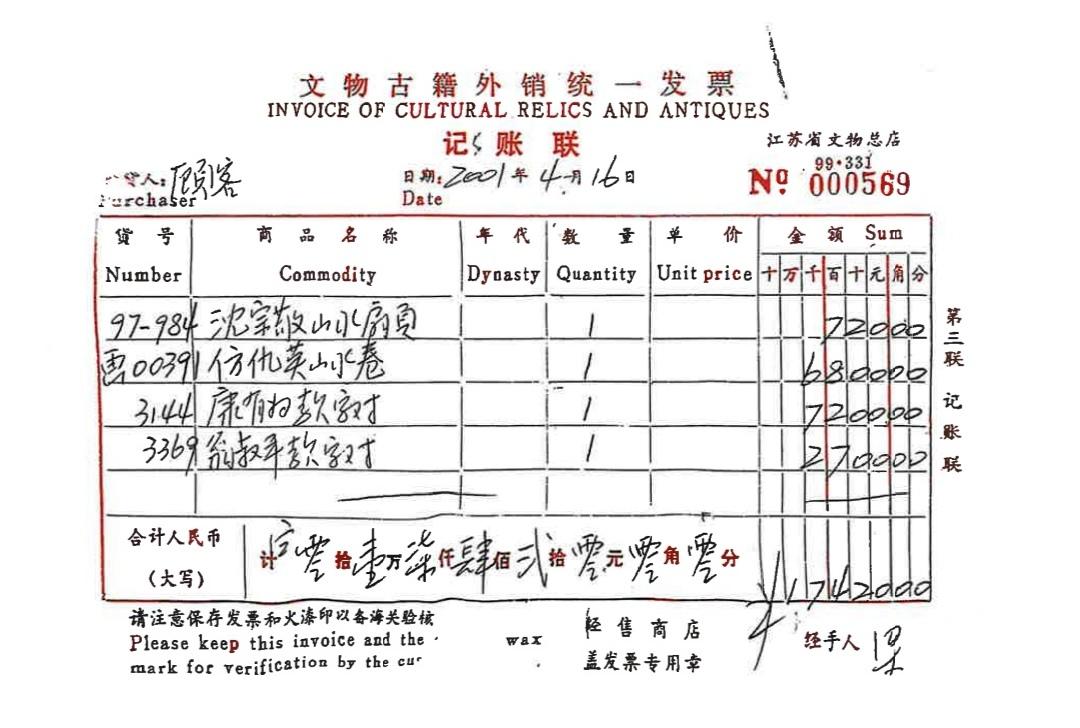 文物古籍外销统一发票
INVOICE OF CULTURAL RELICS AND ANTIQUES
记账联
江苏省文物总店
99·331
货人：顾客 日期：2001年4月16日 Nº 000569
Purchaser Date
货号 商品名称 年代 数量 单价 金额 Sum
Number Commodity Dynasty Quantity Unit price 十万千百十元角分
97-984 沈宗敬山水扇页 1 72000
00391 仿仇英山水卷 1 680000
3144 康有为款字对 1 720000
3369 翁叔平款字对 1 270000
合计人民币（大写） 计 零拾壹万柒仟肆佰贰拾零元零角零分 ¥1742000
第三联 记账联
请注意保存发票和火漆印以备海关验核
Please keep this invoice and the wax
mark for verification by the
经售商店
盖发票专用章
经手人 梁